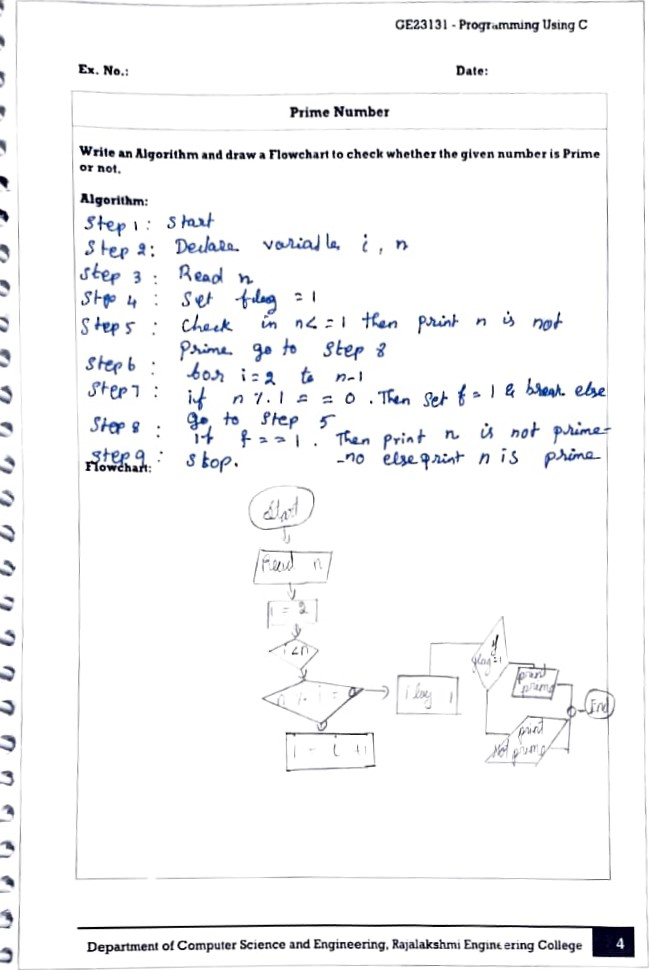 GE23131 - Programming Using C
Ex. No.:
Date:
Prime Number
Write an Algorithm and draw a Flowchart to check whether the given number is Prime
or not.
Algorithm:
Step 1 : Start
Step 2 : Declare variable i, n
Step 3 : Read n
Step 4 : Set flag = 1
Step 5 : Check in n<=1 then print n is not
prime go to step 8
Step 6 : for i=2 to n-1
Step 7 : if n % 1 = = 0 . Then set f = 1 & break else
go to step 5
Step 8 : if f = = 1 . Then print n is not prime-
-no else print n is prime
Step 9 : stop.
Flowchart:
Start
Read n
i = 2
i<n
n % i = 0
i = i + 1
flag 1
if
flag=1
print
prime
End
print
Not prime
Department of Computer Science and Engineering, Rajalakshmi Engineering College
4